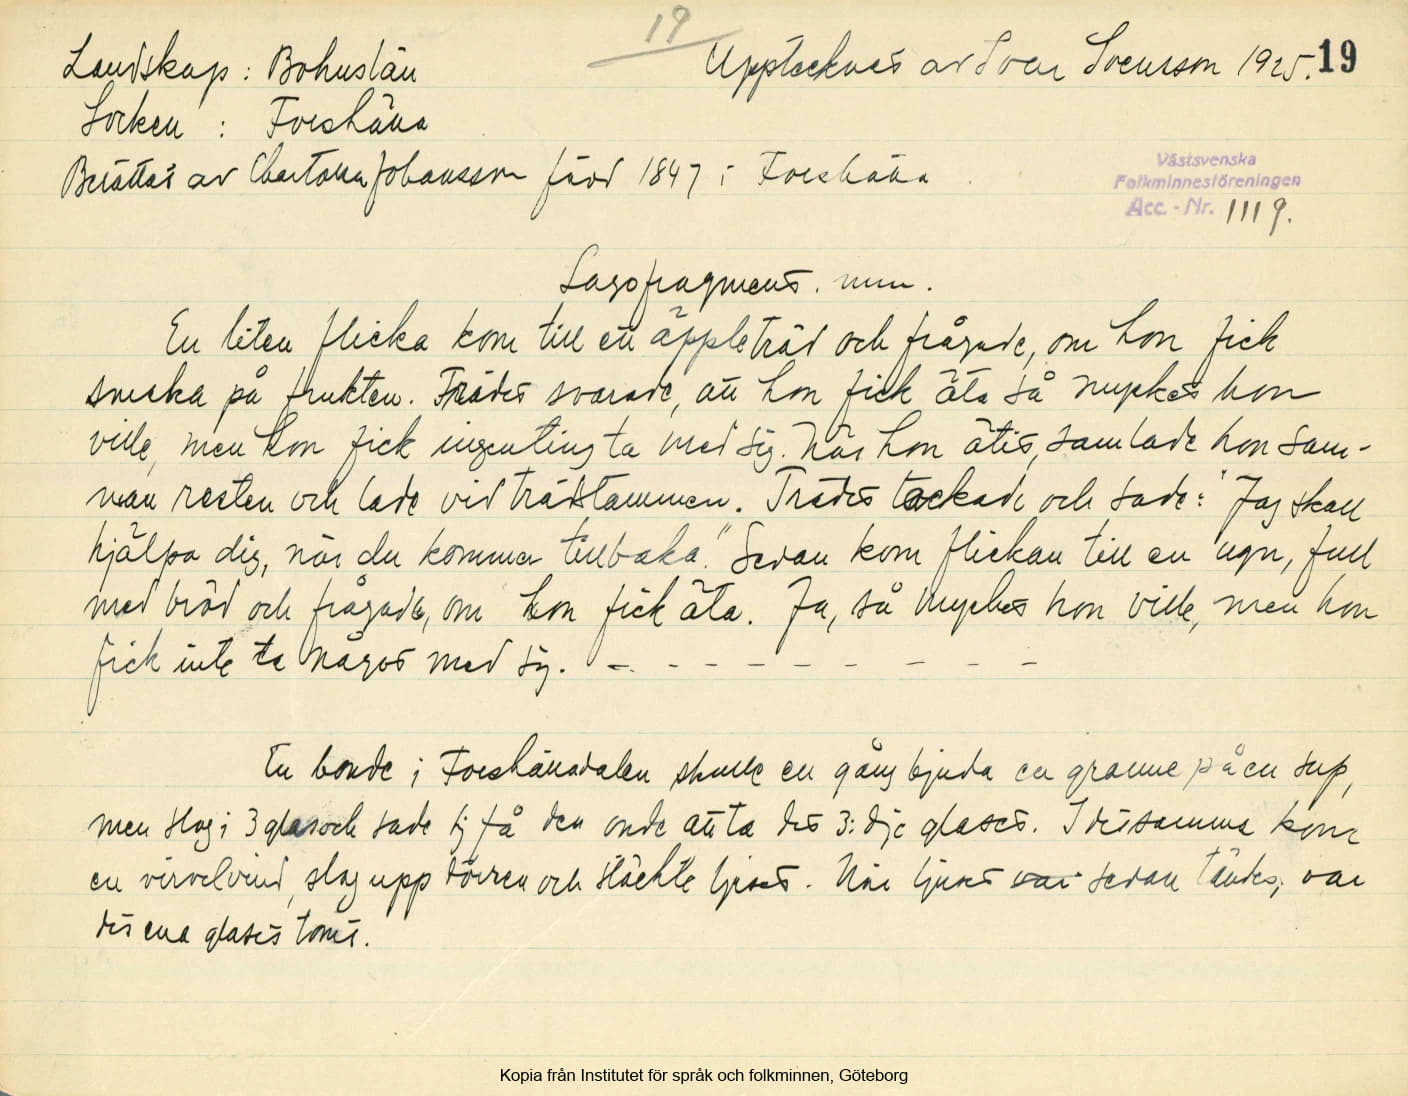 19
Landskap: Bohuslän Upptecknat av Ivar Svensson 1925. 19
Socken : Foeshälla
Berättat av Charlotta Johansson född 1847 i Foeshälla
Västsvenska
Folkminnesföreningen
Acc.-Nr. 1119.
Sagofragment. m.m.
En liten flicka kom till ett äppleträd och frågade, om hon fick
smaka på frukten. Trädet svarade, att hon fick äta så mycket hon
ville, men hon fick ingenting ta med sig. När hon ätit, samlade hon sam-
man resten och lade vid trädstammen. Trädet tackade och sade: "Jag skall
hjälpa dig, när du kommer tillbaka." Sedan kom flickan till en ugn, full
med bröd och frågade, om hon fick äta. Ja, så mycket hon ville, men hon
fick inte ta något med sig. – – – – – – – –
En bonde i Foeshälladalen skulle en gång bjuda en granne på en sup,
men slog i 3 glas och sade sig få den onde att ta det 3:dje glaset. I detsamma kom
en virvelvind, slog upp dörren och släckte ljuset. När ljuset var sedan tändes, var
det ena glaset tomt.
Kopia från Institutet för språk och folkminnen, Göteborg